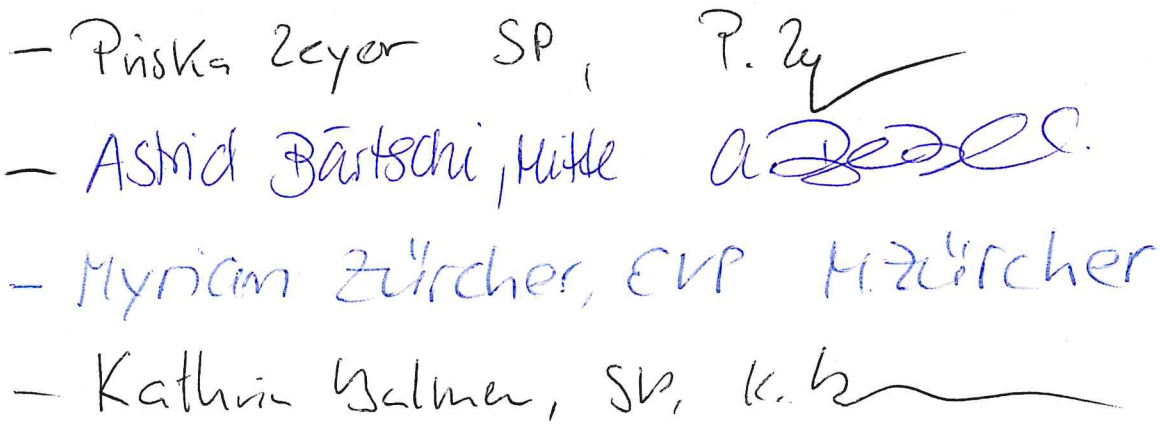 - Priska Zeyer SP, P. Zy
- Astrid Bärtschi, Mitte A
- Myriam Zürcher, EVP M. Zürcher
- Kathrin Balmer, SP, K. B